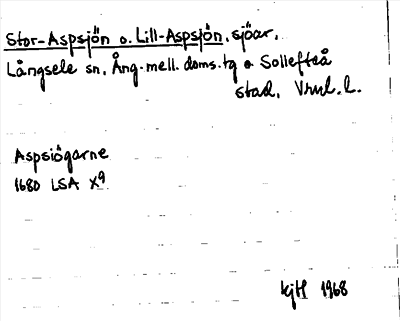 Stor-Aspsjön o. Lill-Aspsjön, sjöar,
Långsele sn, Ång. mell. doms. tg o Sollefteå
stad,
Aspsiögarne
1680 LSA X9
KjH 1968